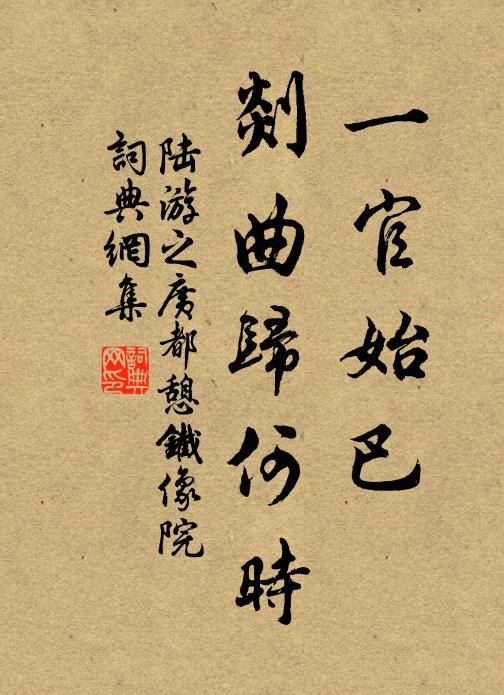 一官始巴
剡曲歸何時
陆游之廣都憩鐵像院
詞典網集
詞典网印